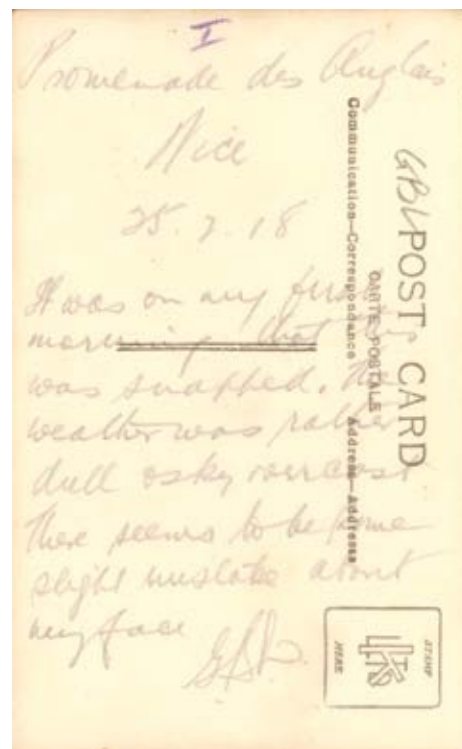 I
Promenade des Anglais
Nice
25.2.18
It was on my first
morning that this
was snapped. The
weather was rather
dull & sky overcast
there seems to be some
slight mistake about
my face
POST CARD
CARTE POSTALE
Communication—Correspondance Address—Addresse
STAMP
HERE